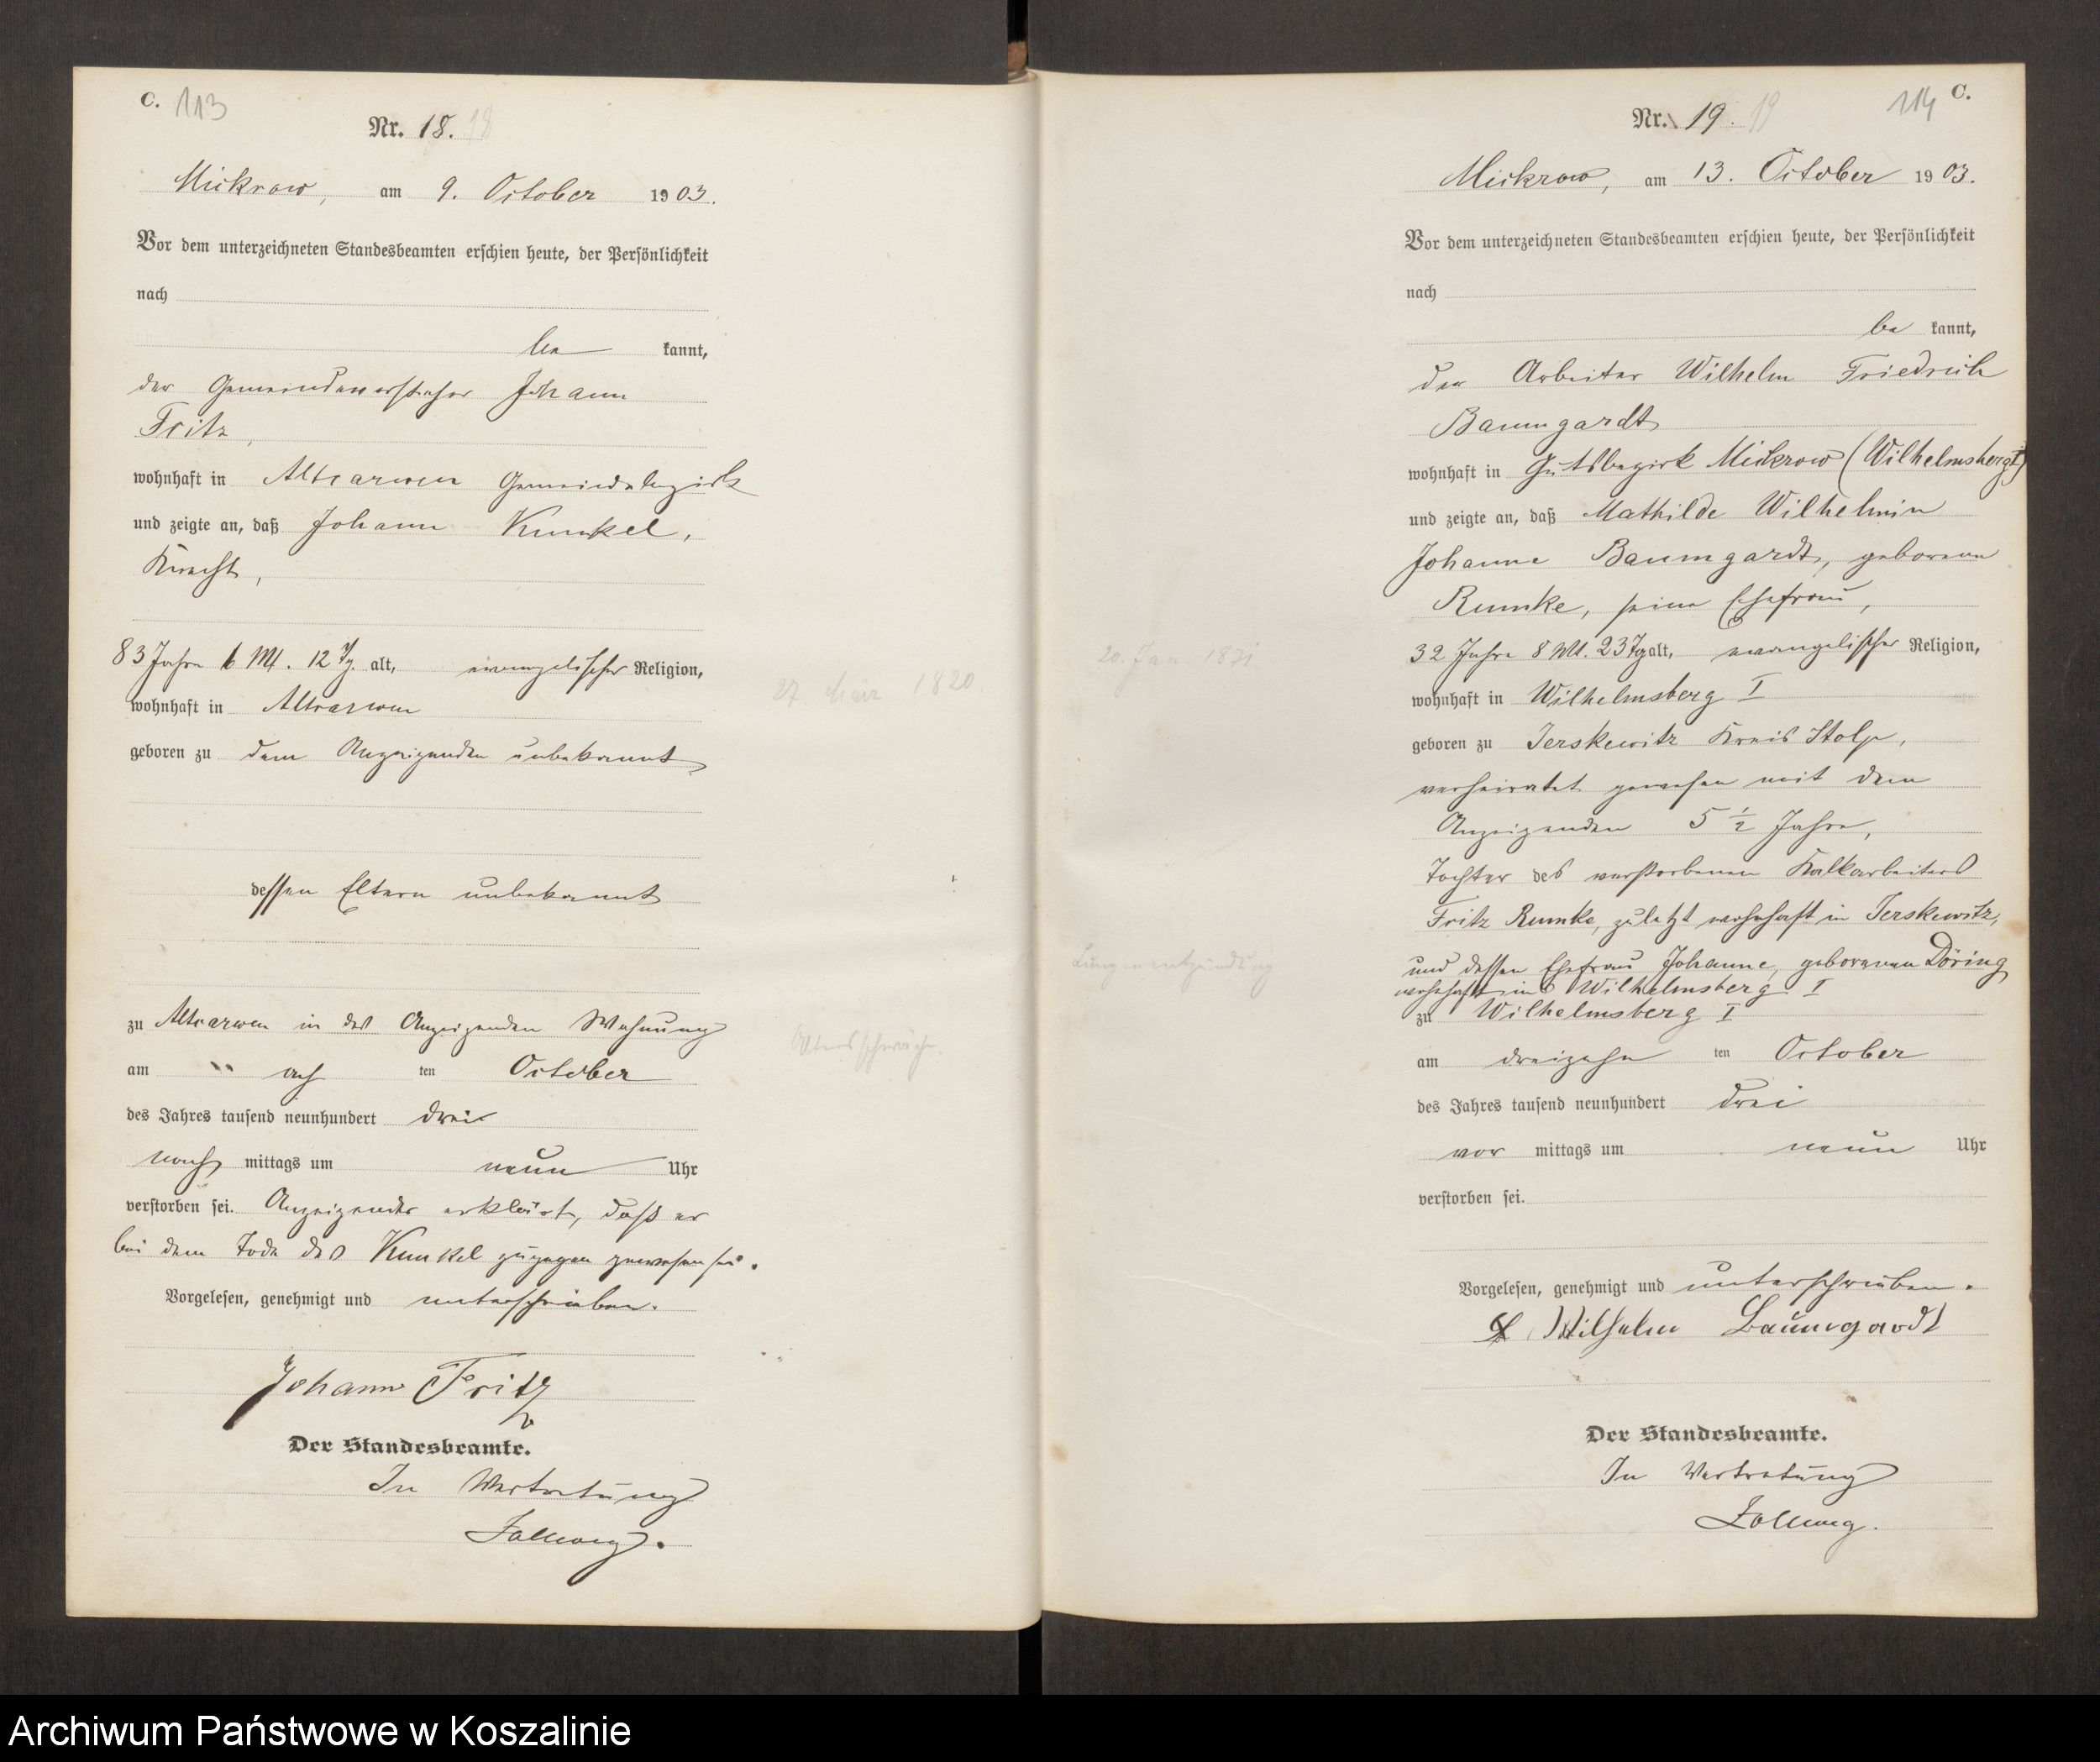 C. 113
Nr. 18. 18
Mickrow, am 9. October 1903.
Vor dem unterzeichneten Standesbeamten erschien heute, der Persönlichkeit
nach
be kannt,
der Gemeindevorsteher Johann
Fritz,
wohnhaft in Altcarwen Gemeindebezirk
und zeigte an, daß Johann Kunkel,
Knecht,
83 Jahre 6 M. 12 Tg. alt, evangelischer Religion,
wohnhaft in Altcarwen
geboren zu dem Anzeigenden unbekannt
dessen Eltern unbekannt
zu Altcarwen in des Anzeigenden Wohnung
am ach ten October
des Jahres tausend neunhundert drei
nach mittags um neun Uhr
verstorben sei. Anzeigender erklärt, daß er
bei dem Tode des Kunkel zugegen gewesen sei.
Vorgelesen, genehmigt und unterschrieben.
Johann Fritz
Der Standesbeamte.
In Vertretung
27. März 1820.
Altersschwäche.
114 C.
Nr. 19. 19
Mickrow, am 13. October 1903.
Vor dem unterzeichneten Standesbeamten erschien heute, der Persönlichkeit
nach
be kannt,
der Arbeiter Wilhelm Friedrich
Baumgardt
wohnhaft in Gutsbezirk Mickrow (Wilhelmsberg I)
und zeigte an, daß Mathilde Wilhelmin
Johanne Baumgardt, geborene
Rumke, seine Ehefrau,
32 Jahre 8 Mt. 23 Tg alt, evangelischer Religion,
wohnhaft in Wilhelmsberg I
geboren zu Jerskewitz Kreis Stolp,
verheiratet gewesen mit dem
Anzeigenden 5 ½ Jahre,
Tochter des verstorbenen Kalkarbeiters
Fritz Rumke, zuletzt wohnhaft in Jerskewitz,
und dessen Ehefrau Johanne, geborenen Döring
wohnhaft in Wilhelmsberg I
zu Wilhelmsberg I
am dreizehn ten October
des Jahres tausend neunhundert drei
vor mittags um neun Uhr
verstorben sei.
Vorgelesen, genehmigt und unterschrieben.
Wilhelm Baumgardt
Der Standesbeamte.
In Vertretung
20. Jan 1871
Lungenentzündung
Archiwum Państwowe w Koszalinie